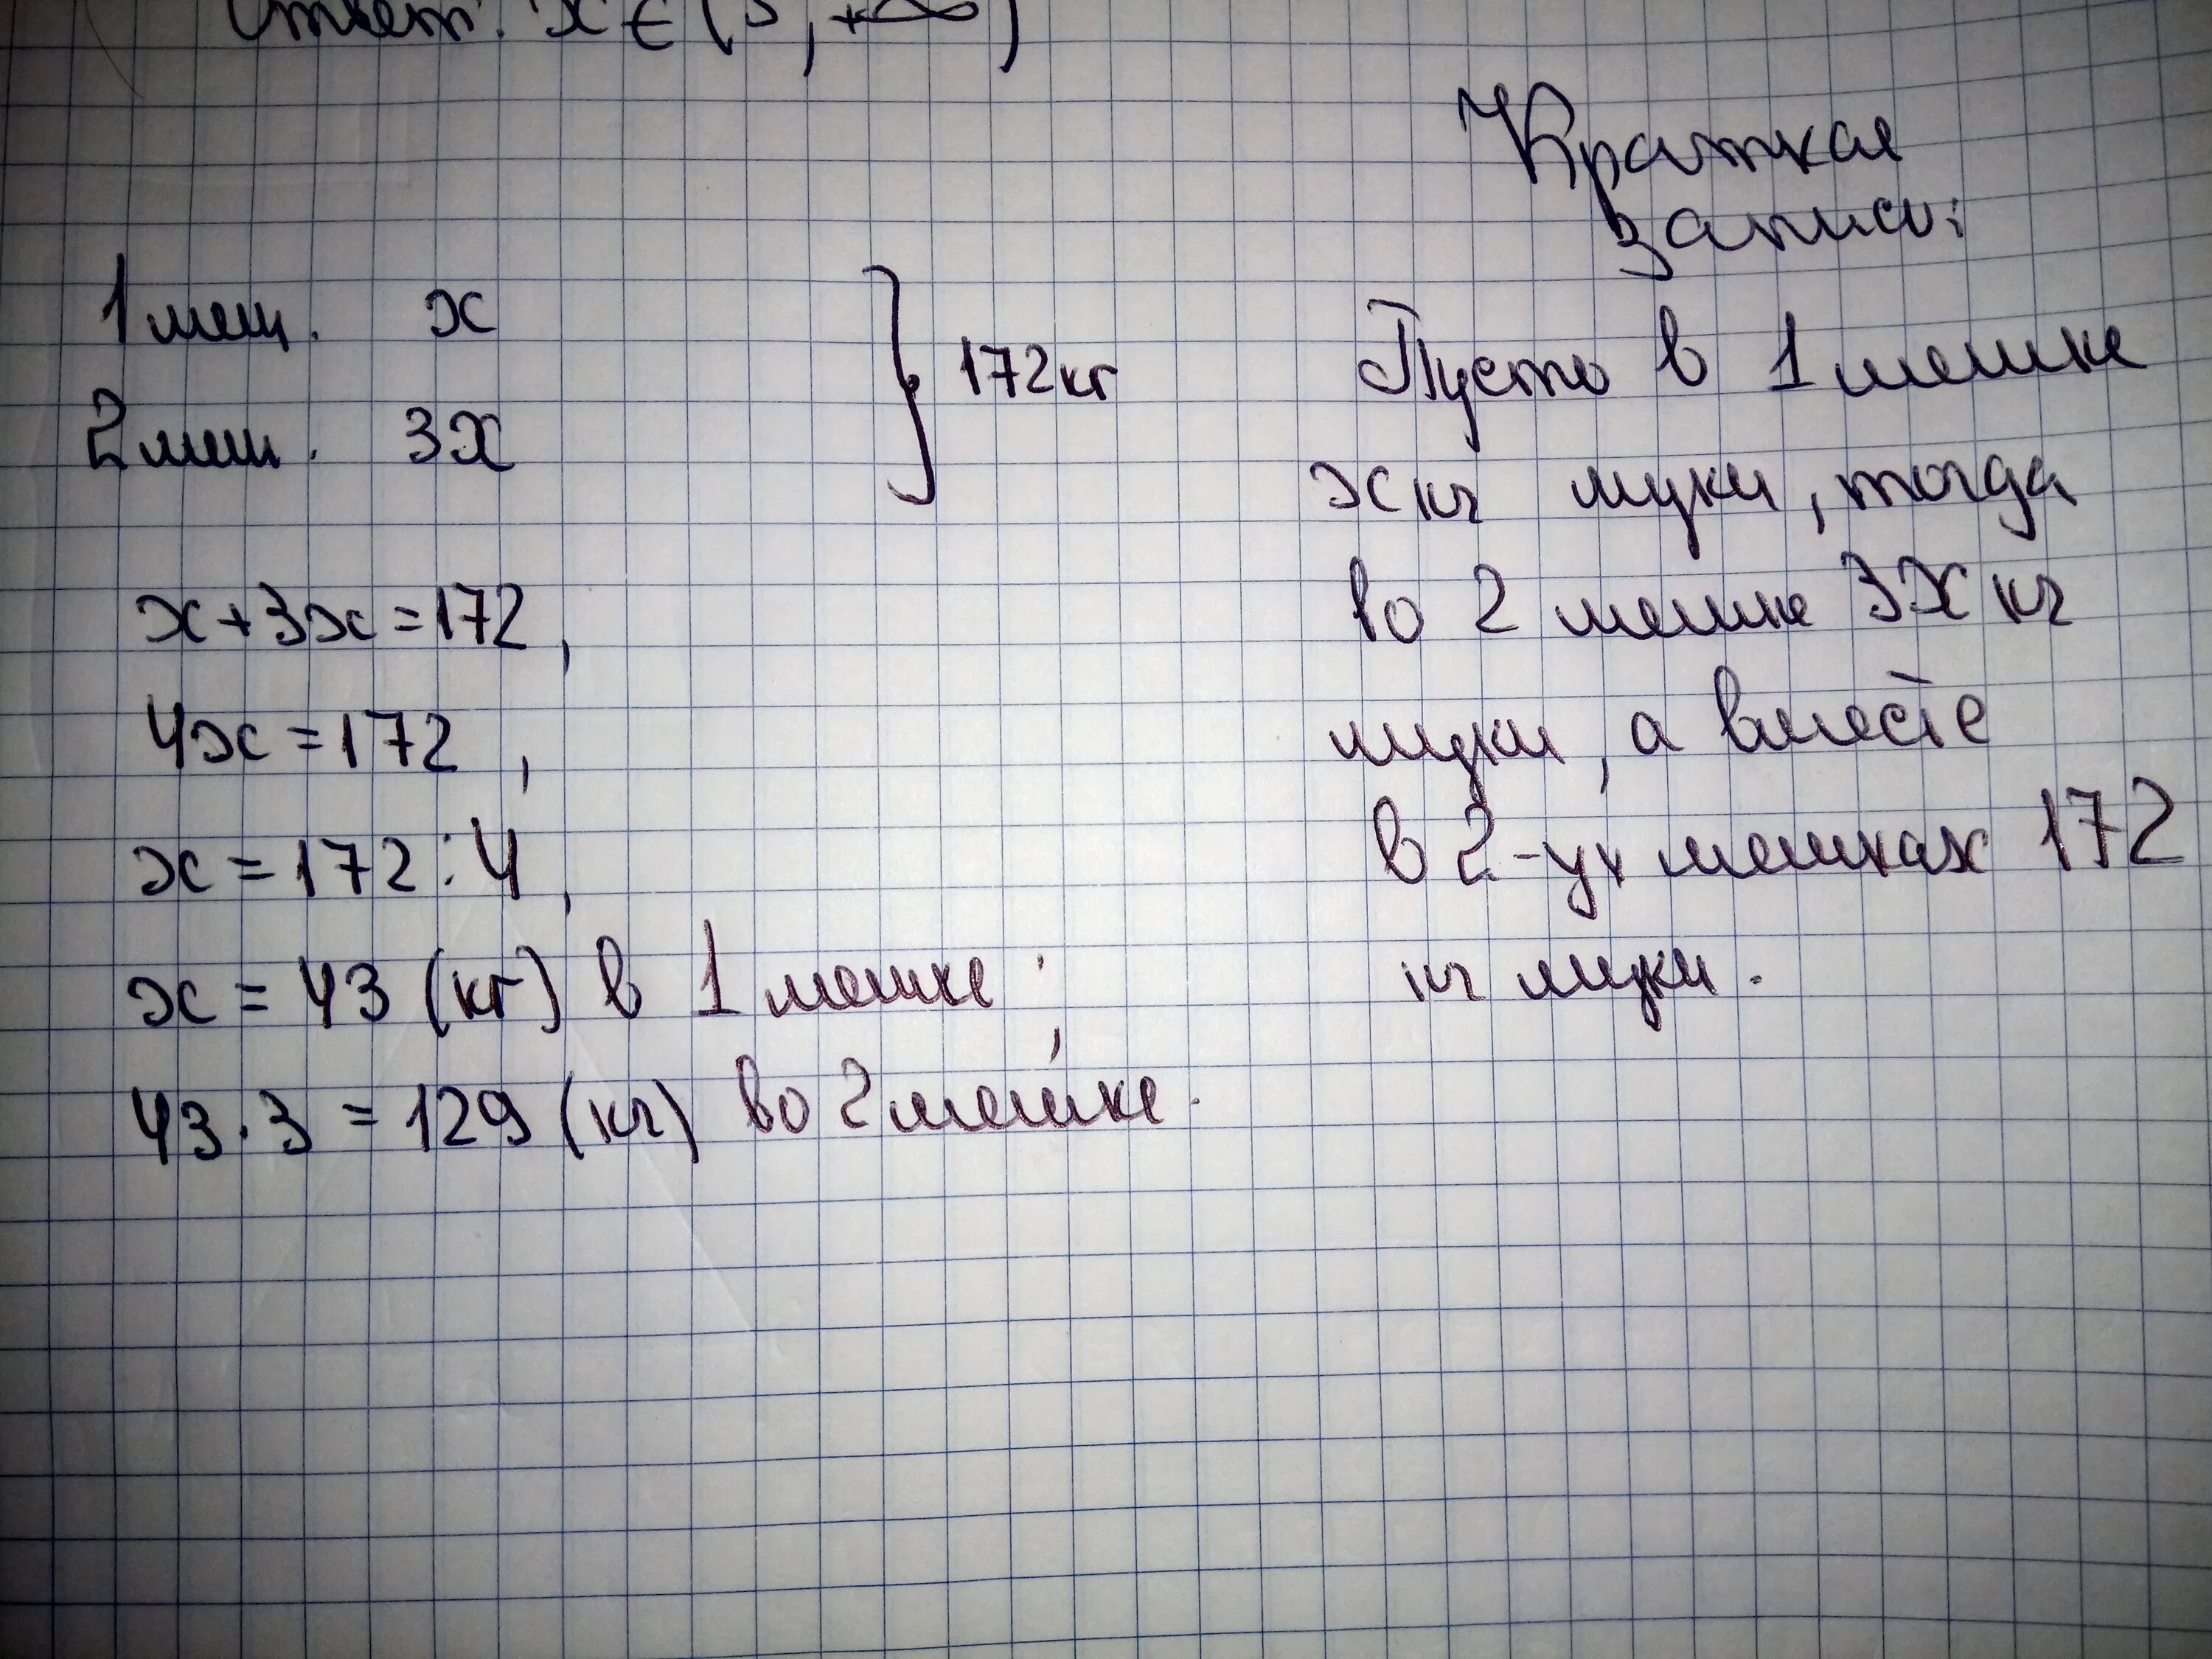 Ответ: x∈(3, +∞)
1 меш. x
2 меш. 3x
} 172кг
x+3x=172,
4x=172,
x=172:4,
x=43 (кг) в 1 мешке;
43·3=129 (кг) во 2 мешке.
Краткая
запись:
Пусть в 1 мешке
x кг муки, тогда
во 2 мешке 3x кг
муки, а вместе
в 2-ух мешках 172
кг муки.